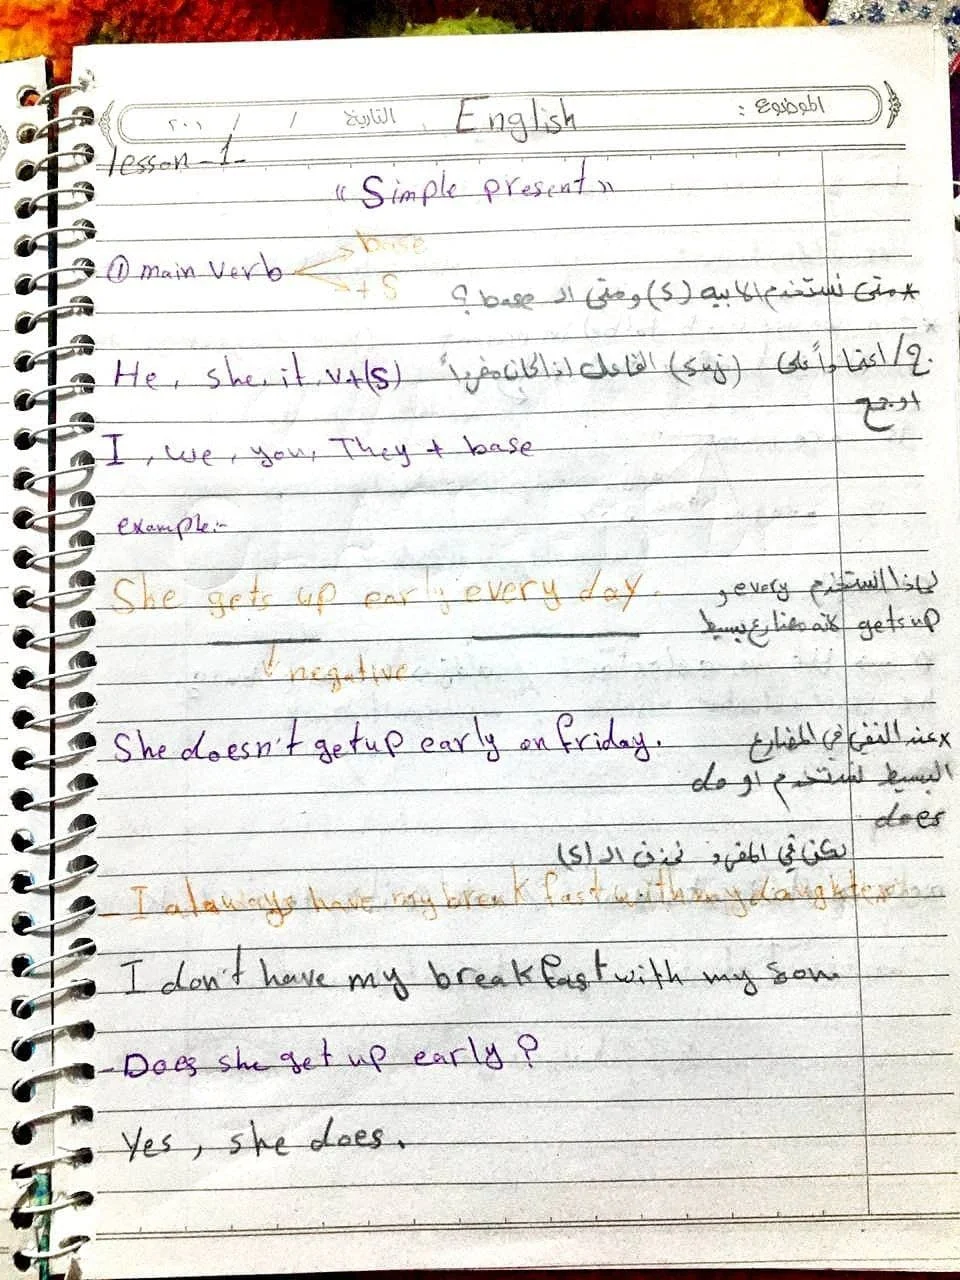 الموضوع : English التاريخ / / ٢٠١
lesson -1-
" Simple present "
① main verb base
+ S
* متى نستخدم الـ (S) ومتى الـ base ؟
He, she, it, v+(S) ج/ اعتماداً على (suj) الفاعل اذا كان مفرداً
او جمع
I, we, you, They + base
example:-
She gets up early every day. لماذا استخدم every و
gets up لانه مضارع بسيط
negative
She doesn't get up early on friday. × عند النفي في المضارع
البسيط نستخدم do او
does
لكن في المفرد نحذف الـ (S)
- I alaways have my breakfast with my daughter
I don't have my breakfast with my son
- Does she get up early ?
Yes, she does.